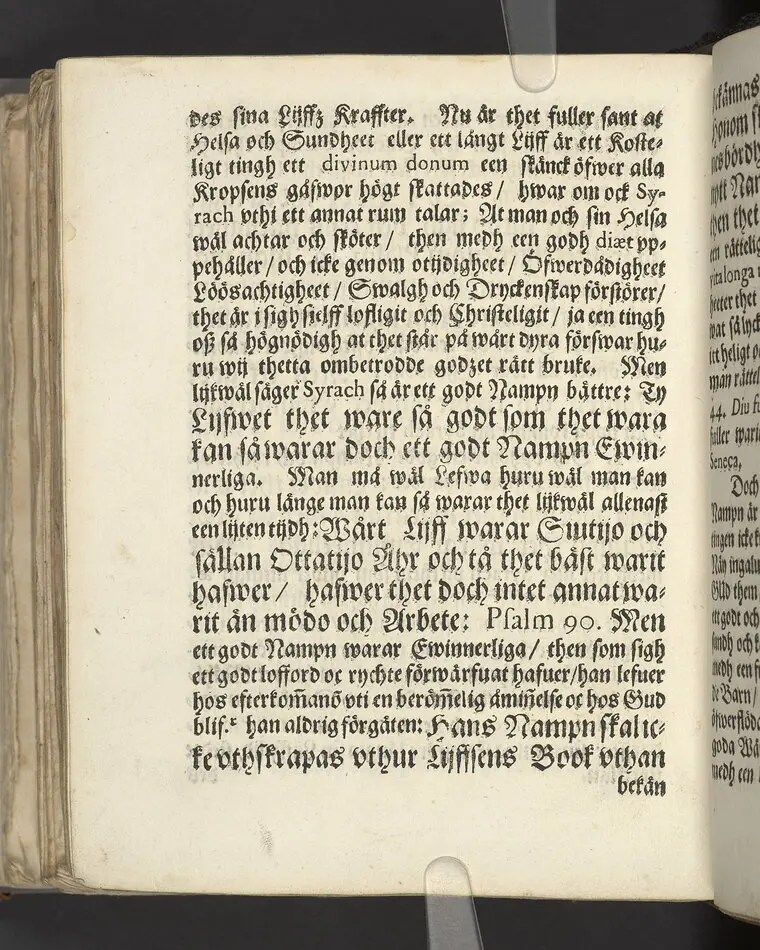 des sina Lijffz Kraffter. Nu är thet fuller sant at
Helsa och Sundheet eller ett långt Lijff är ett Koste-
ligt tingh ett divinum donum een skänck öfwer alla
Kropsens gåfwor högt skattades / hwar om ock Sy-
rach vthi ett annat rum talar; At man och sin Helsa
wäl achtar och sköter / then medh een godh diæt vp-
pehåller / och icke genom otijdigheet / Öfwerdådigheet
Löösachtigheet / Swalgh och Dryckenskap förstörer /
thet är i sigh sielff lofligit och Christeligit / ja een tingh
oß så högnödigh at thet står på wårt dyra förswar hu-
ru wij thetta ombetrodde godzet rätt bruke. Men
lijkwäl säger Syrach så är ett godt Nampn bättre: Ty
Lijfwet thet ware så godt som thet wara
kan så warar doch ett godt Nampn Ewin-
nerliga. Man må wäl Lefwa huru wäl man kan
och huru länge man kan så warar thet lijkwäl allenast
een lijten tijdh: Wårt Lijff warar Siutijo och
sällan Ottatijo Åhr och tå thet bäst warit
hafwer / hafwer thet doch intet annat wa-
rit än mödo och Arbete: Psalm 90. Men
ett godt Nampn warar Ewinnerliga / then som sigh
ett godt lofford oc rychte förwärfuat hafuer / han lefuer
hos efterkom̃anō vti en beröm̃elig åmiñelse oc hos Gud
blif.ʳ han aldrig förgäten: Hans Nampn skal ic-
ke vthskrapas vthur Lijffsens Book vthan
bekän